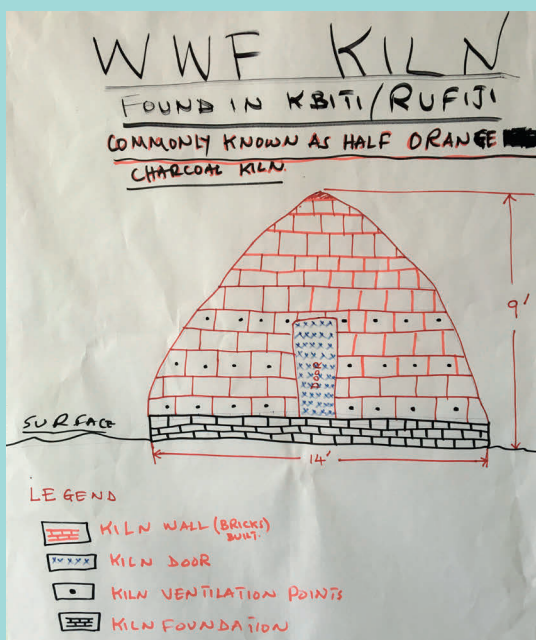 WWF KILN
FOUND IN KBITI/RUFIJI
COMMONLY KNOWN AS HALF ORANGE
CHARCOAL KILN.
9'
DOOR
SURFACE
14'
LEGEND
KILN WALL (BRICKS) BUILT.
KILN DOOR
KILN VENTILATION POINTS
KILN FOUNDATION